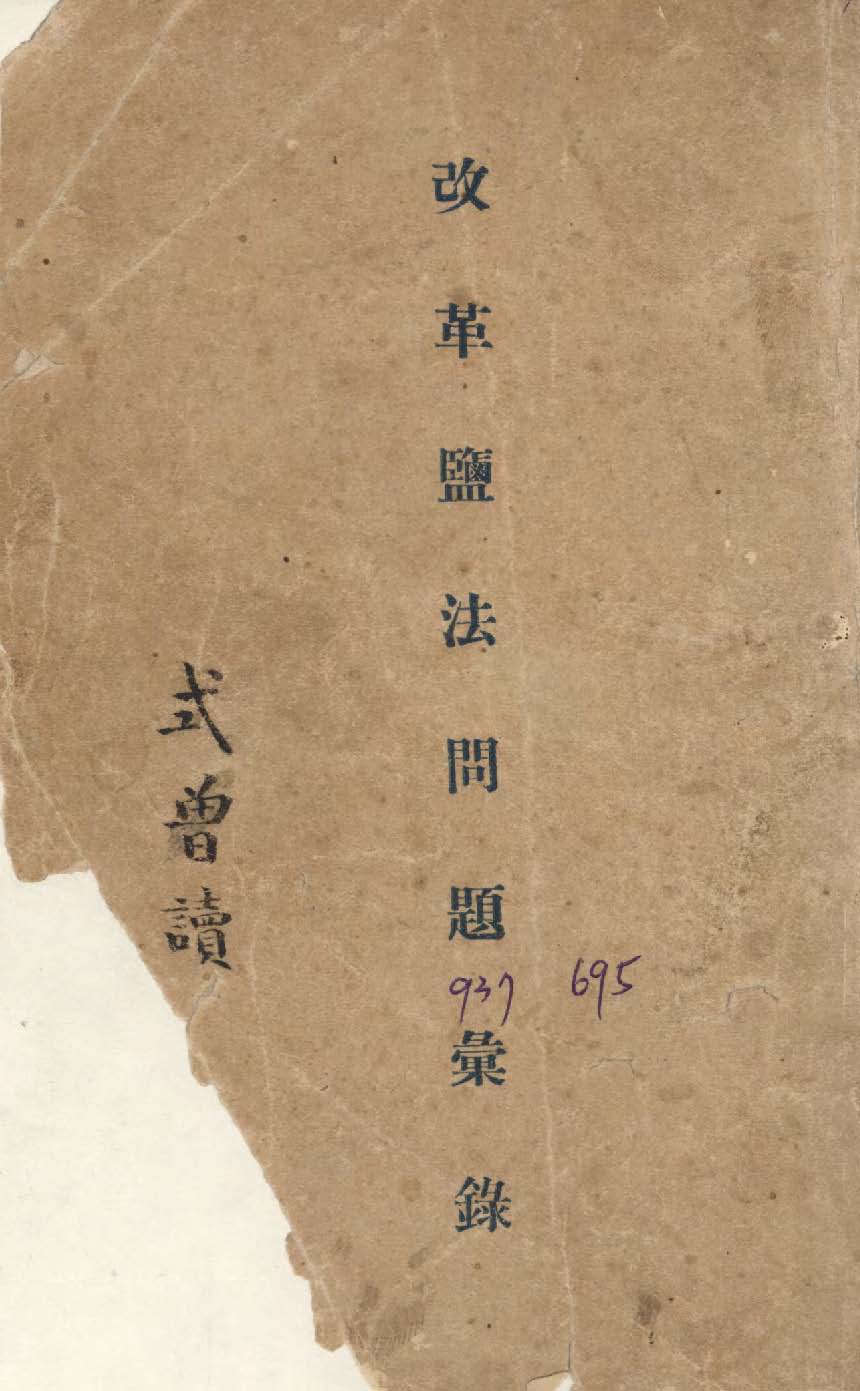 改革鹽法問題彙錄
937 695
式曾讀